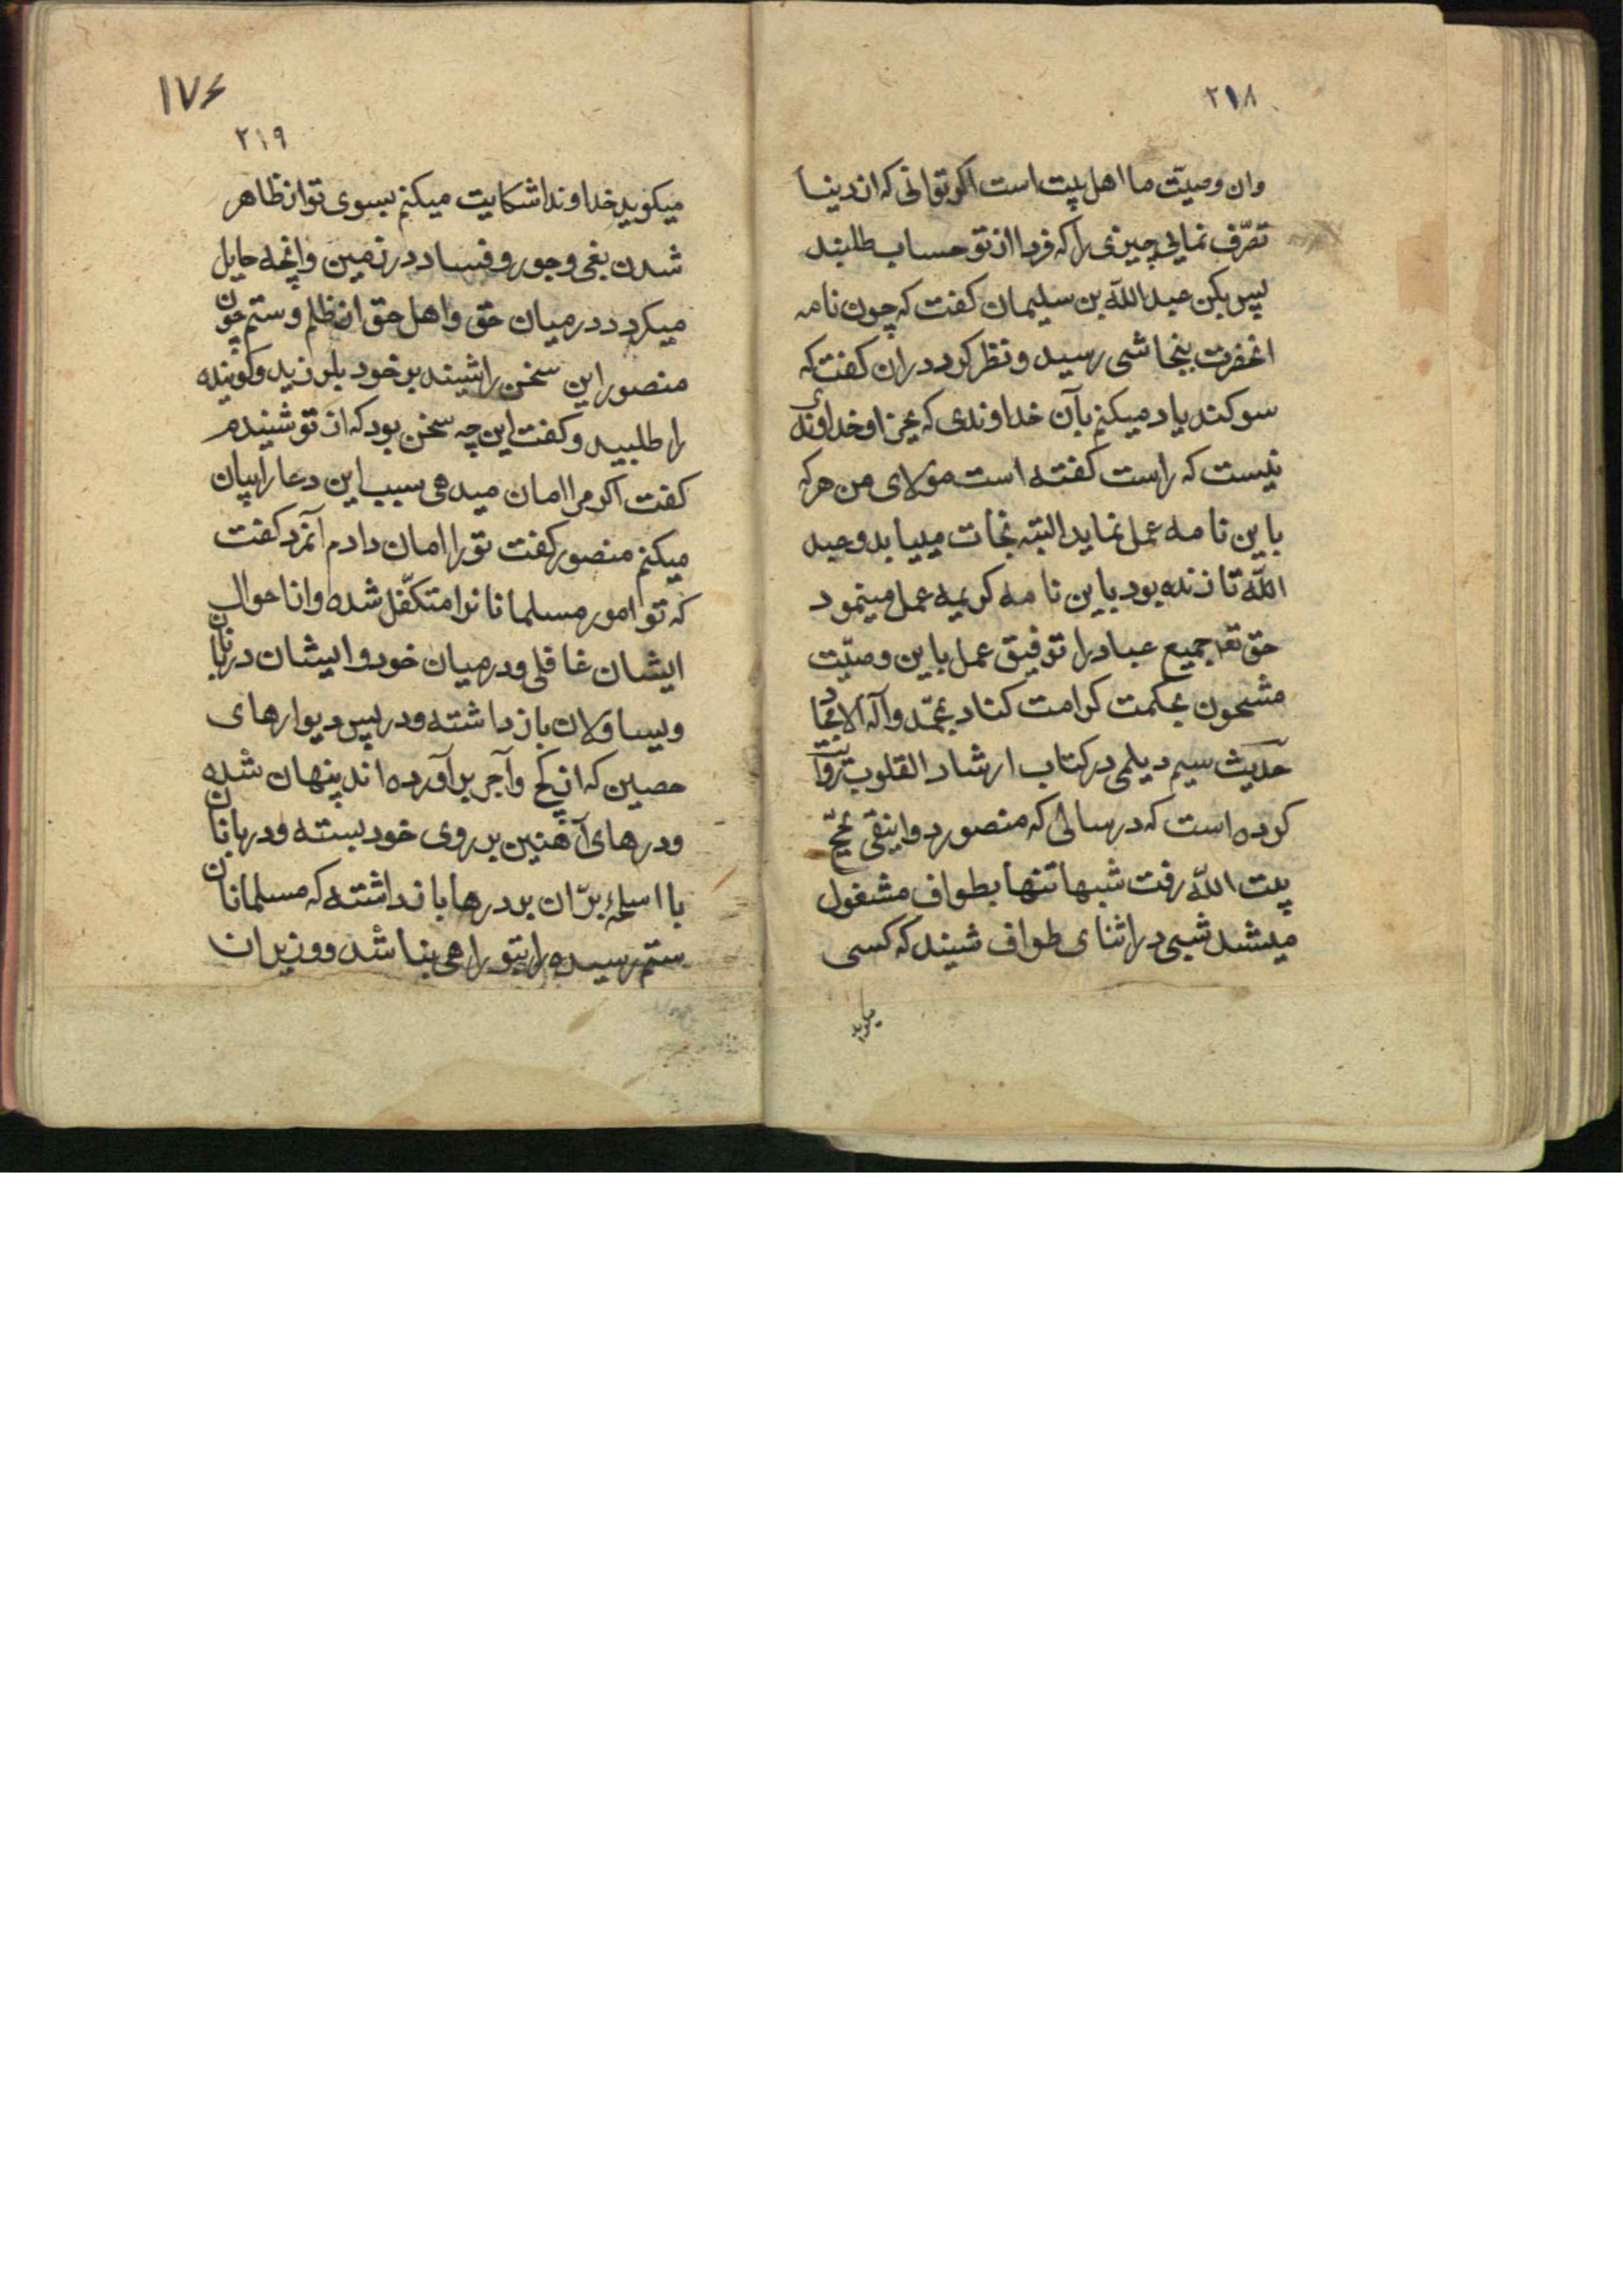 ۲۱۸
وان وصیّت ما اهل بیت است اکر توانی که از دنیا
تصرّف نمایی چیزی را که فردا از تو حساب طلبند
پس بکن عبد اللّه بن سلیمان کفت که چون نامه
انحضرت بنجاشی رسید و نظر کرد دران کفت که
سوکند یاد میکنم بآن خداوندی که بجز او خداوندی
نیست که راست کفته است مولای من هر که
باین نامه عمل نماید البته نجات مییابد و عبد
اللّه تا زنده بود باین نامه کریمه عمل مینمود
حق تعه جمیع عباد را توفیق عمل باین وصیّت
مشحون بحکمت کرامت کناد بمحمّد وآله الامجاد
حدیث سیم دیلمی در کتاب ارشاد القلوب روایت
کرده است که در سالی که منصور دوانیقی بحجّ
بیت اللّه رفت شبها تنها بطواف مشغول
میشد شبی در اثنای طواف شنید که کسی
میکوید
۱۷۶
۲۱۹
میکوید خداوندا شکایت میکنم بسوی تو از ظاهر
شدن بغی و جور و فساد در زمین وانچه حایل
میکردد در میان حق و اهل حق از ظلم و ستم چون
منصور این سخن را شنید بر خود بلرزید و کوینده
را طلبید و کفت این چه سخن بود که از تو شنیدم
کفت اکر مرا امان میدهی سبب این دعا را بیان
میکنم منصور کفت تو را امان دادم آنمرد کفت
که تو امور مسلمانانرا متکفّل شده و از احوال
ایشان غافلی و در میان خود و ایشان دربانان
و یساولان باز داشته و در پس دیوارهای
حصین که از کچ و آجر برآورده اند پنهان شده
و درهای آهنین بر روی خود بسته و دربانان
با اسلحهٔ برّان بر درها باز داشته که مسلمانان
ستم رسیده را بتو راهی نباشد و وزیران